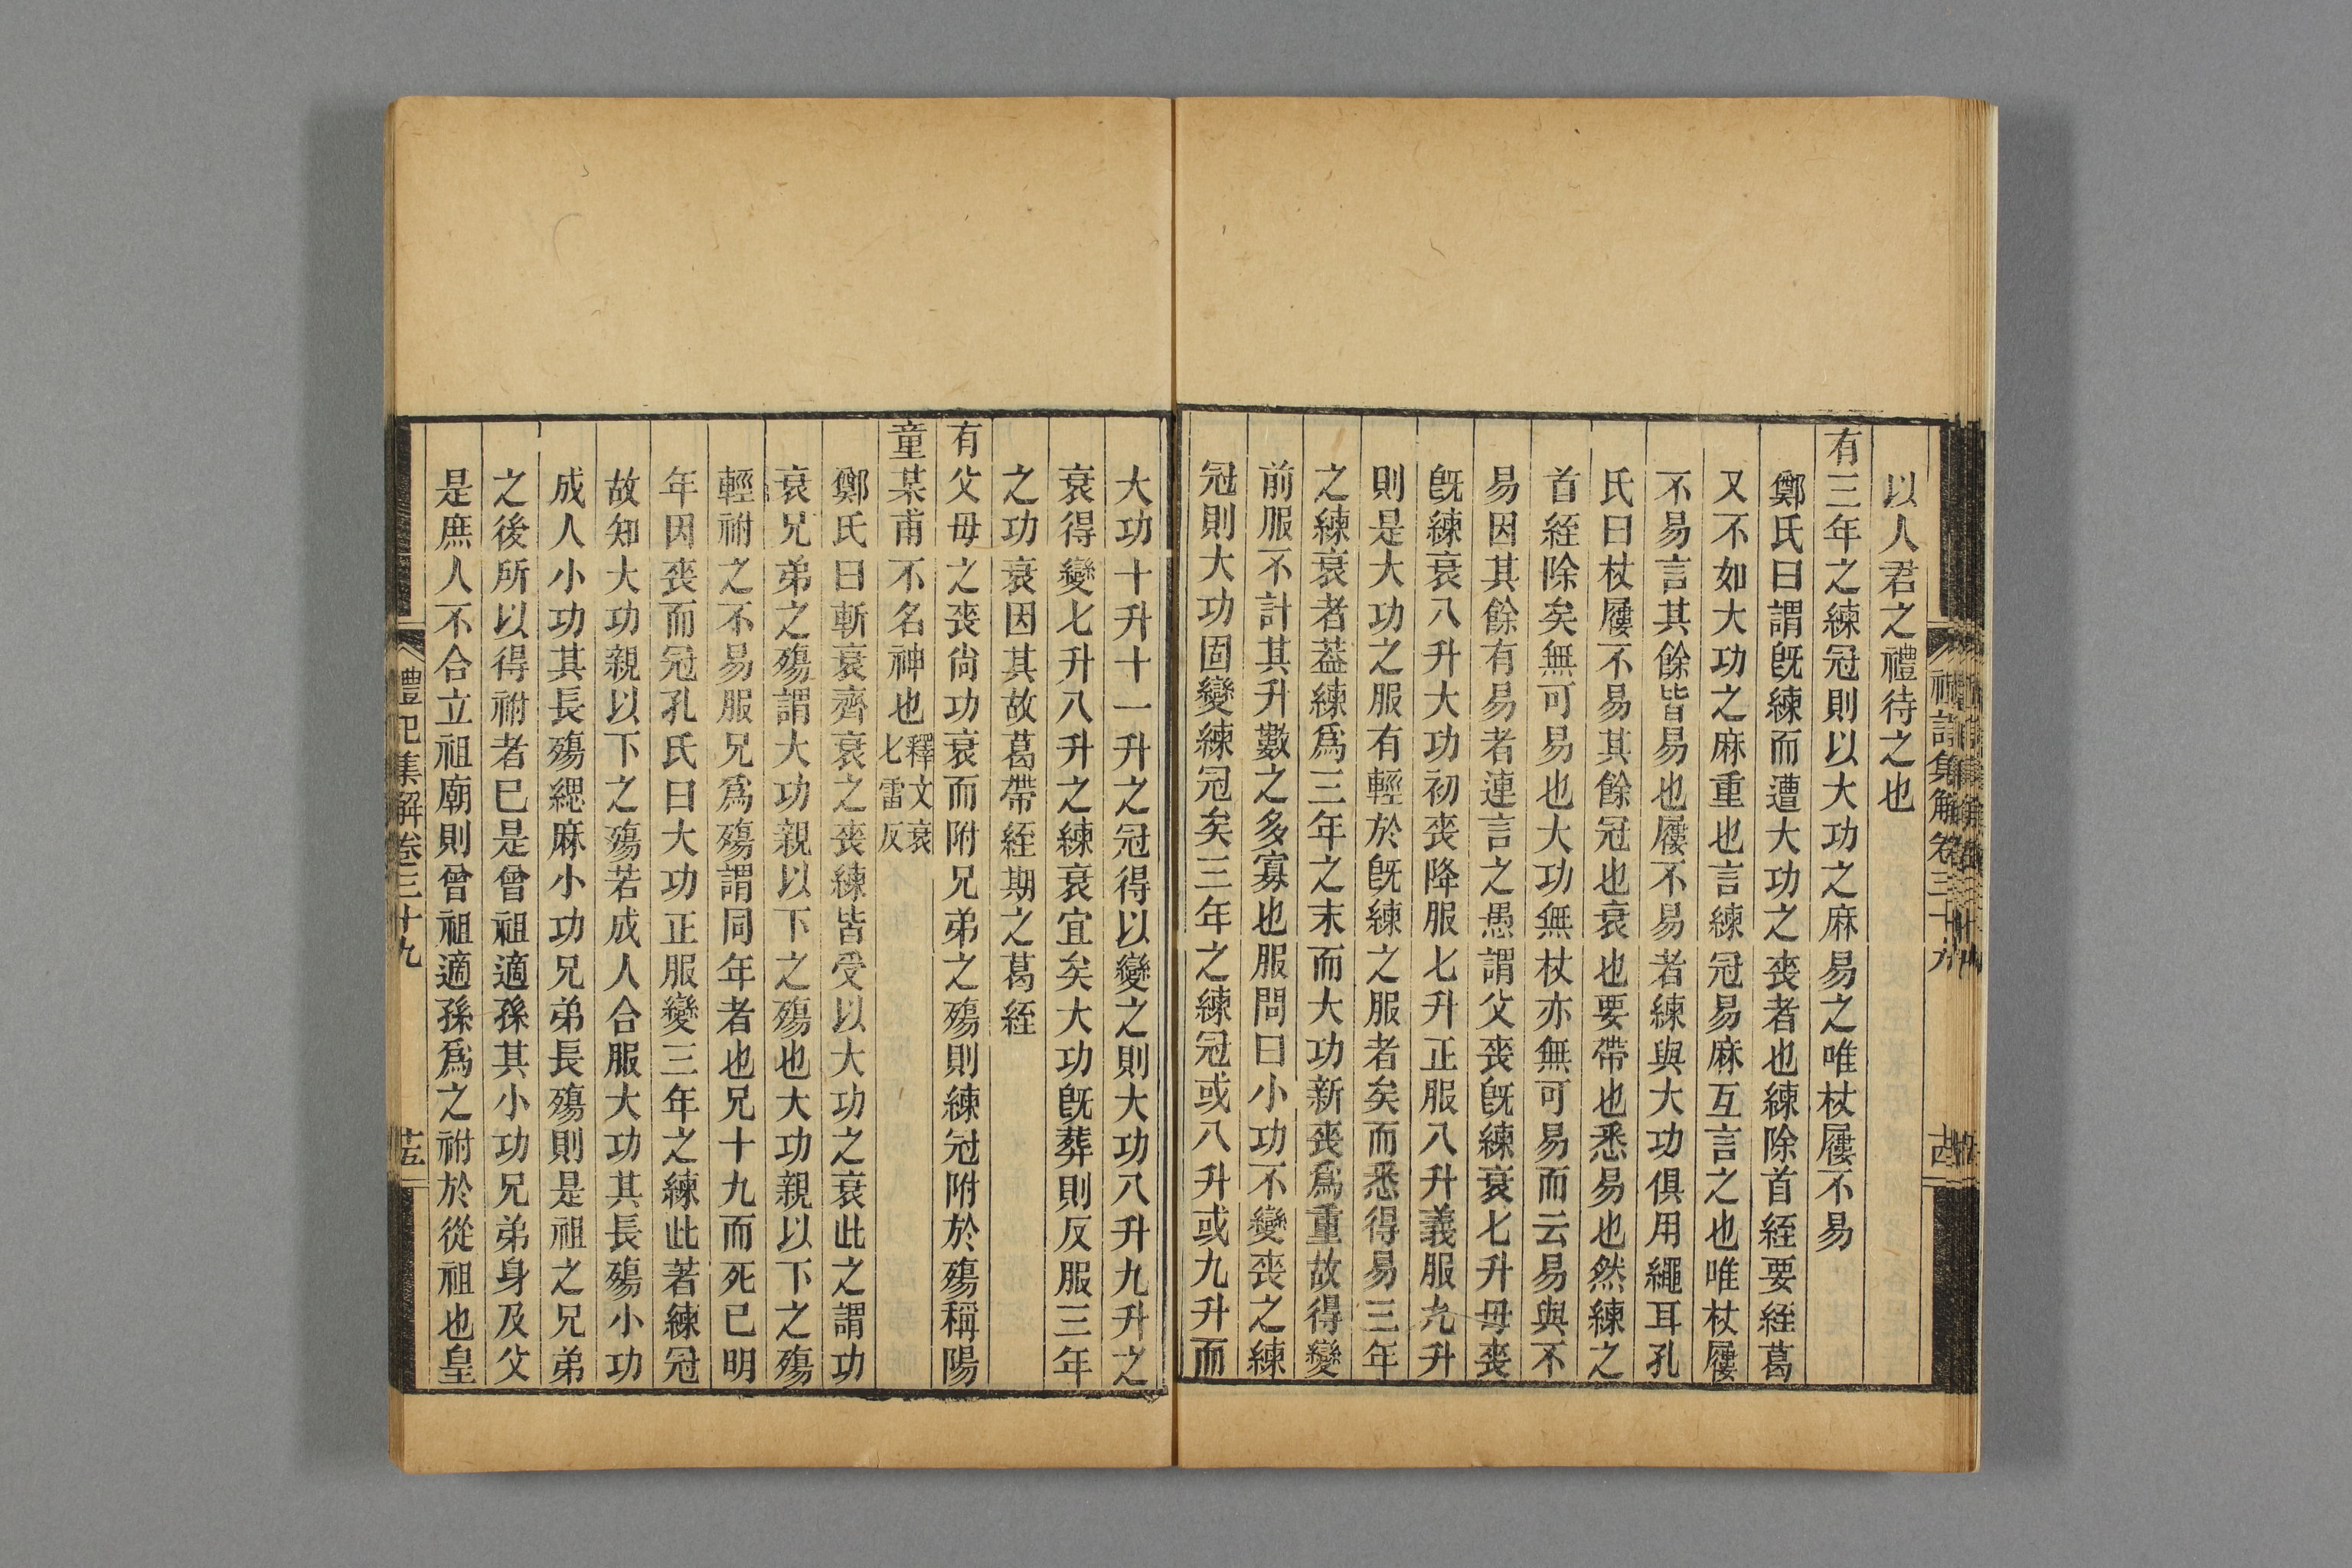 以人君之禮待之也
有三年之練冠則以大功之麻易之唯杖屨不易
鄭氏曰謂旣練而遭大功之喪者也練除首絰要絰葛
又不如大功之麻重也言練冠易麻互言之也唯杖屨
不易言其餘皆易也屨不易者練與大功俱用繩耳孔
氏曰杖屨不易其餘冠也衰也要帶也悉易也然練之
首絰除矣無可易也大功無杖亦無可易而云易與不
易因其餘有易者連言之愚謂父喪旣練衰七升母喪
旣練衰八升大功初喪降服七升正服八升義服九升
則是大功之服有輕於旣練之服者矣而悉得易三年
之練衰者葢練爲三年之末而大功新喪爲重故得變
前服不計其升數之多寡也服問曰小功不變喪之練
冠則大功固變練冠矣三年之練冠或八升或九升而
大功十升十一升之冠得以變之則大功八升九升之
衰得變七升八升之練衰宜矣大功旣葬則反服三年
之功衰因其故葛帶絰期之葛絰
有父母之喪尙功衰而附兄弟之殤則練冠附於殤稱陽
童某甫不名神也釋文衰七雷反
鄭氏曰斬衰齊衰之喪練皆受以大功之衰此之謂功
衰兄弟之殤謂大功親以下之殤也大功親以下之殤
輕祔之不易服兄爲殤謂同年者也兄十九而死已明
年因喪而冠孔氏曰大功正服變三年之練此著練冠
故知大功親以下之殤若成人合服大功其長殤小功
成人小功其長殤緦麻小功兄弟長殤則是祖之兄弟
之後所以得祔者已是曾祖適孫其小功兄弟身及父
是庶人不合立祖廟則曾祖適孫爲之祔於從祖也皇
禮記集解卷三十九